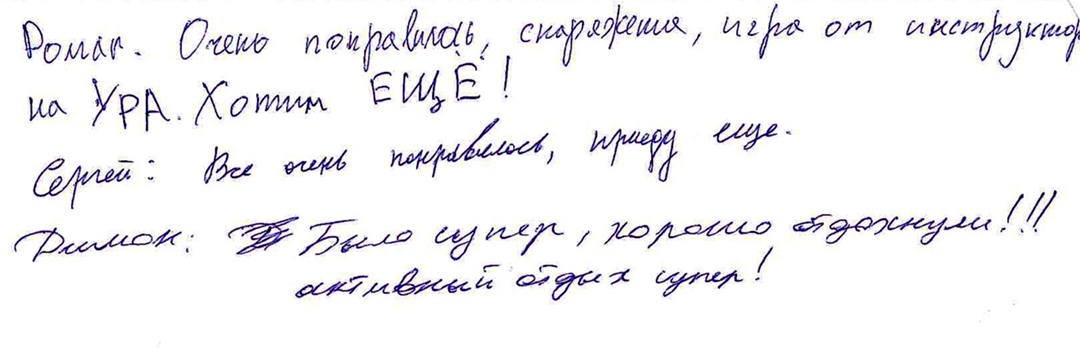 Роман. Очень понравилось, снаряжения, игра от инструктор
на УРА. Хотим ЕЩЁ!
Сергей: Все очень понравилось, приеду еще.
Димон: Было супер, хорошо отдохнули!!!
активный отдых супер!